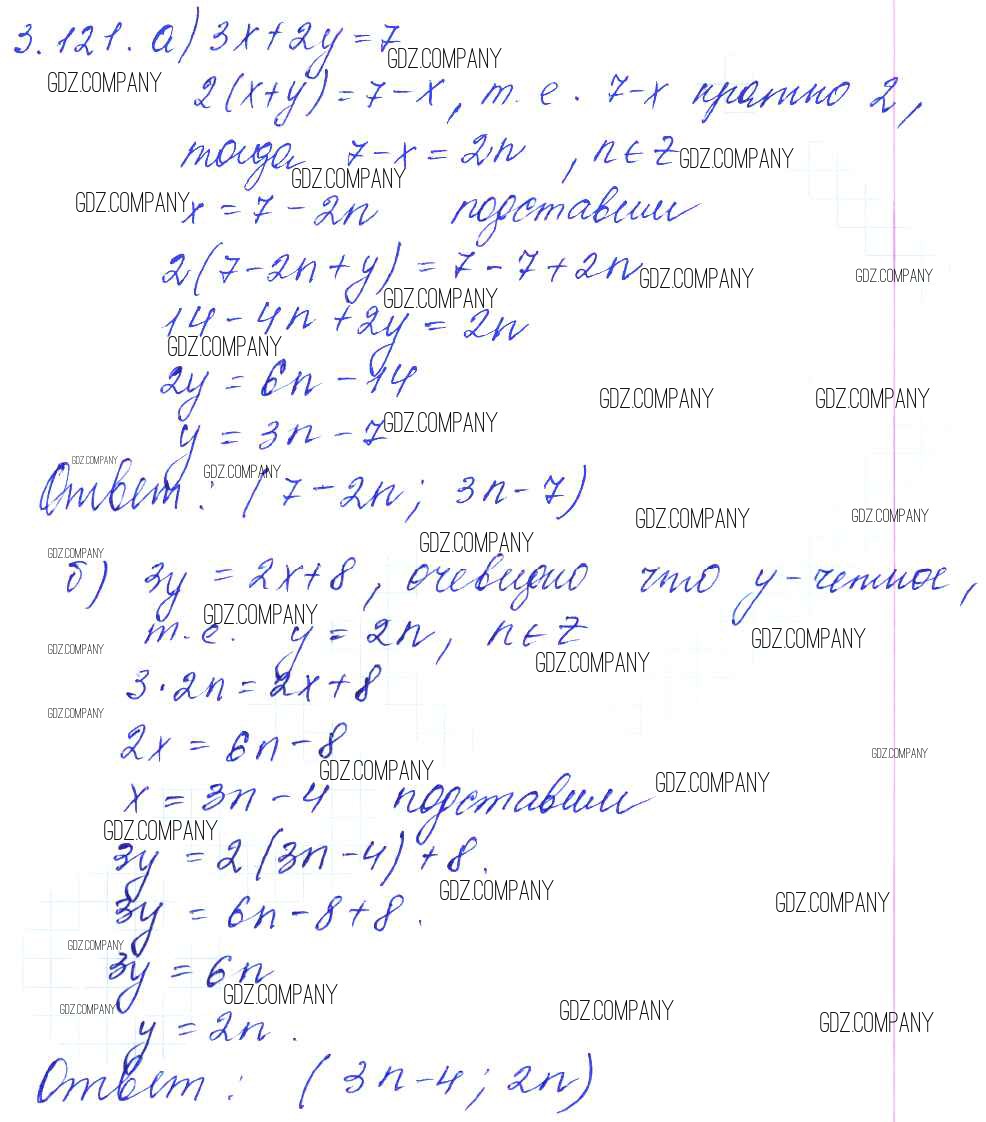 3.121. а) 3x+2y=7
GDZ.COMPANY
GDZ.COMPANY
2(x+y)=7-x, т.е. 7-x кратно 2,
тогда 7-x=2n, n∈Z GDZ.COMPANY
GDZ.COMPANY
GDZ.COMPANY x=7-2n подставим
2(7-2n+y)=7-7+2n GDZ.COMPANY GDZ.COMPANY
GDZ.COMPANY
14-4n+2y=2n
GDZ.COMPANY
2y=6n-14
GDZ.COMPANY GDZ.COMPANY
y=3n-7 GDZ.COMPANY
GDZ.COMPANY GDZ.COMPANY
Ответ: (7-2n; 3n-7)
GDZ.COMPANY GDZ.COMPANY
GDZ.COMPANY
GDZ.COMPANY
б) 3y=2x+8, очевидно что y-четное,
GDZ.COMPANY
т.е. y=2n, n∈Z GDZ.COMPANY
GDZ.COMPANY GDZ.COMPANY
3·2n=2x+8
GDZ.COMPANY
2x=6n-8
GDZ.COMPANY
GDZ.COMPANY GDZ.COMPANY
x=3n-4 подставим
GDZ.COMPANY
3y=2(3n-4)+8.
GDZ.COMPANY GDZ.COMPANY
3y=6n-8+8.
GDZ.COMPANY
3y=6n
GDZ.COMPANY
GDZ.COMPANY GDZ.COMPANY GDZ.COMPANY
y=2n.
Ответ: (3n-4; 2n)